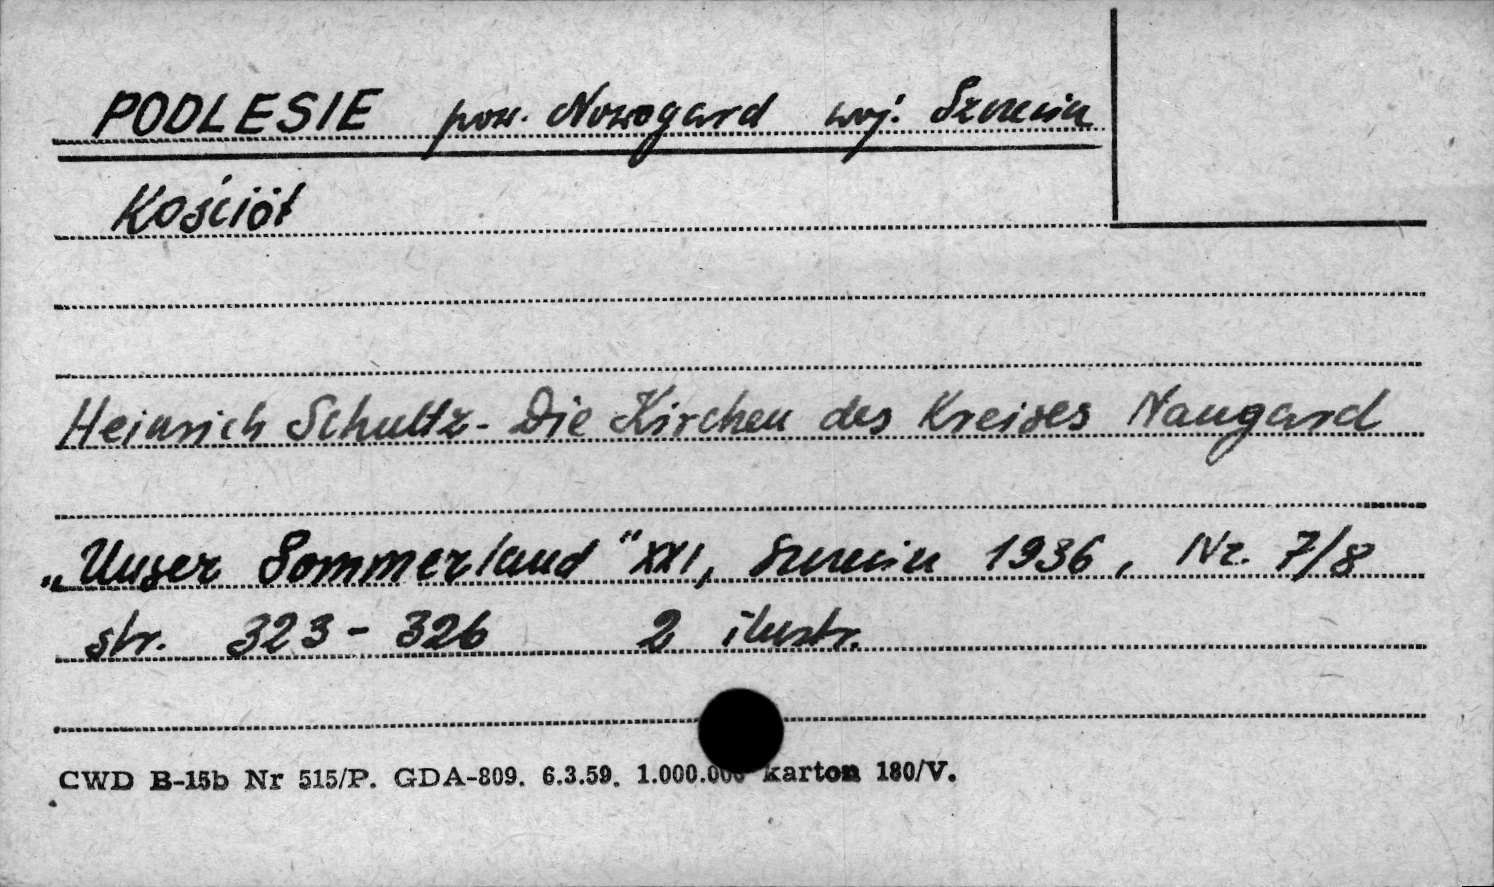 PODLESIE pow. Nowogard woj. Szczecin
Kościół
Heinrich Schultz - Die Kirchen des Kreises Naugard
„Unser Sommerland" XXI, Szczecin 1936, Nr. 7/8
str. 323 - 326 2 ilustr.
CWD B-15b Nr 515/P. GDA-809. 6.3.59. 1.000.000 karton 180/V.